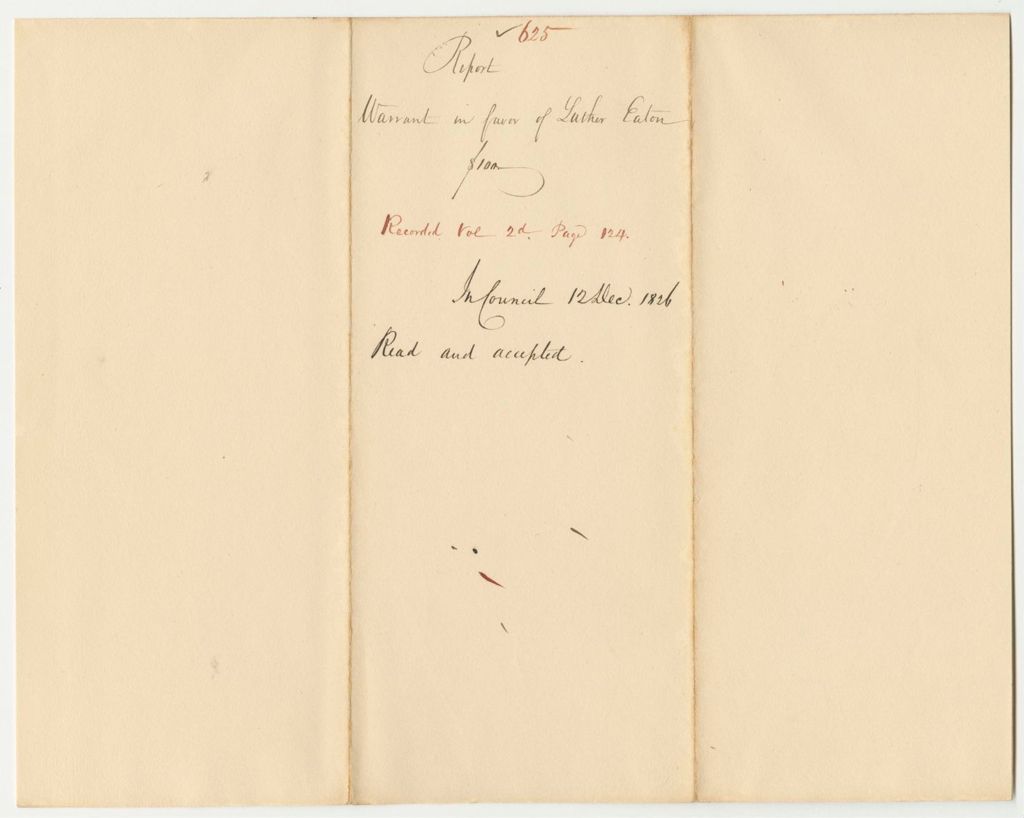 ✓ 625
Report
Warrant in favor of Luther Eaton
$100
Recorded Vol 2d. Page 124.
In Council 12 Dec. 1826
Read and accepted.